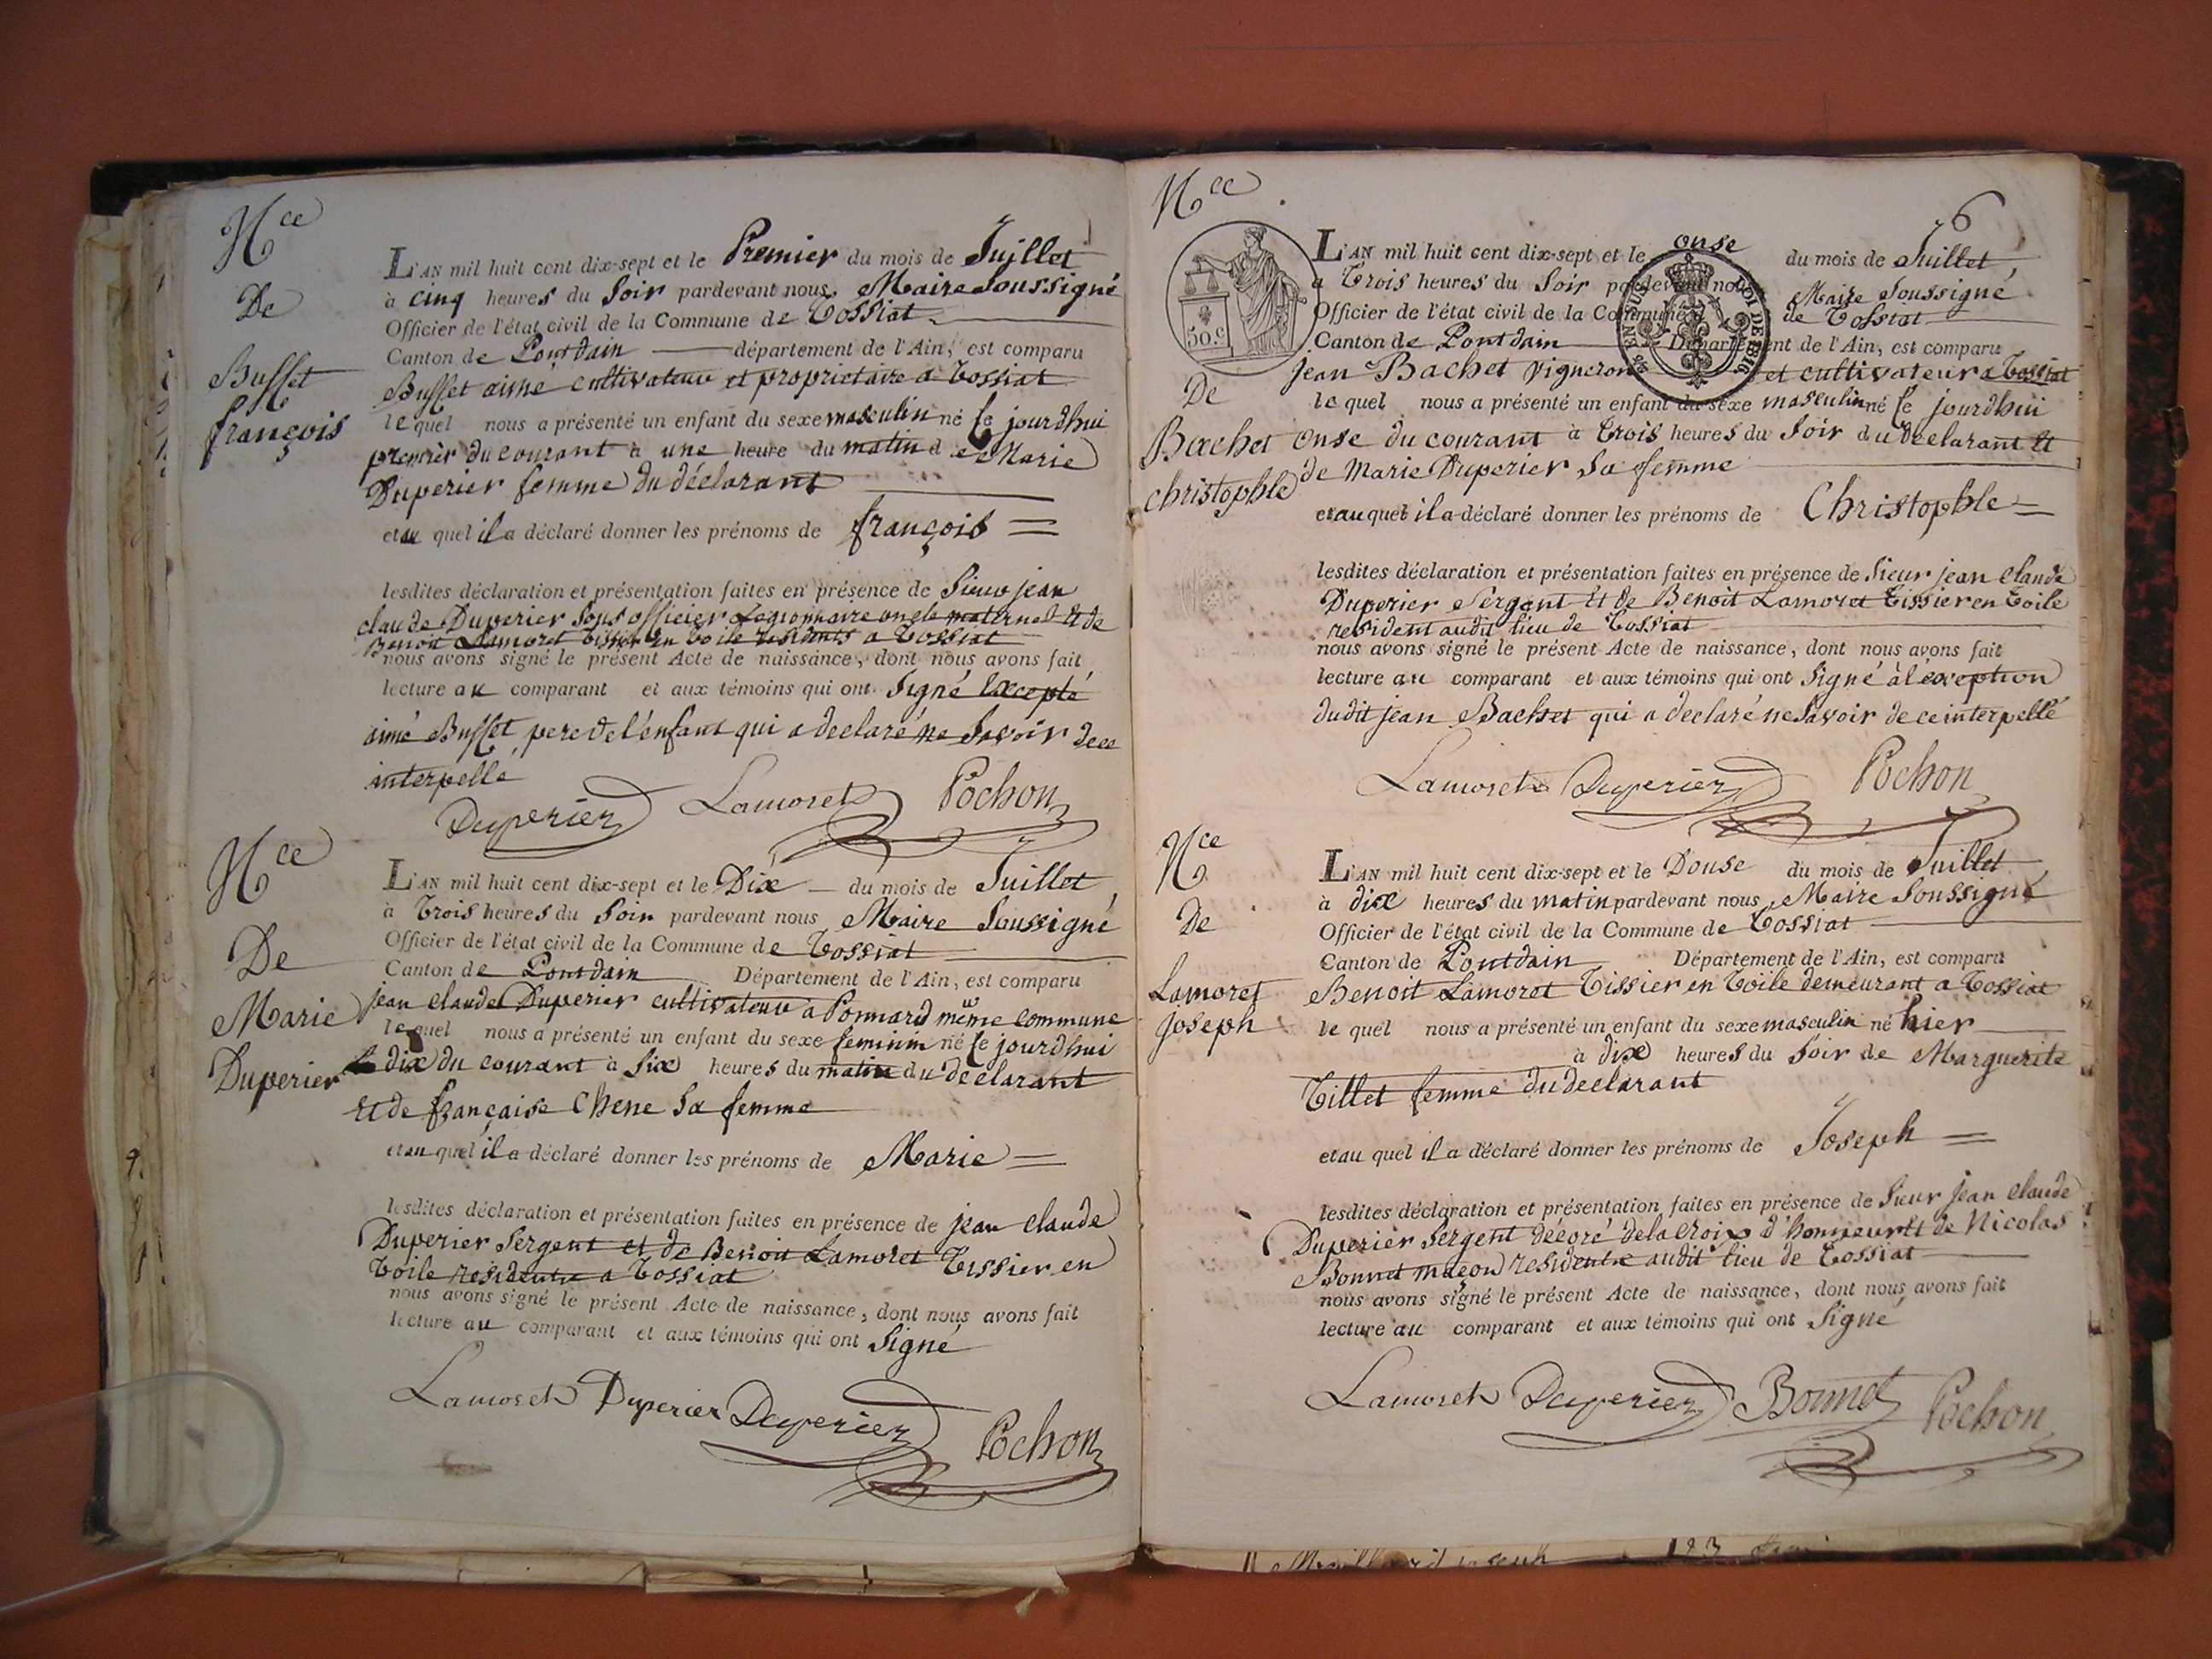 Nce
De
Buffet
françois
L'AN mil huit cent dix-sept et le Premier du mois de Juillet
à cinq heures du Soir pardevant nous Maire Soussigné
Officier de l'état civil de la Commune de Tossiat
Canton de Pontdain département de l'Ain, est comparu
Buffet aimé cultivateur et proprietaire a Tossiat
lequel nous a présenté un enfant du sexe masculin né le jourdhui
premier du courant à une heure du matin de Marie
Duperier femme du déclarant
et au quel il a déclaré donner les prénoms de françois
lesdites déclaration et présentation faites en présence de Sieur jean
claude Duperier Sous officier Legionnaire oncle maternel et de
Benoit Lamoret Tissier en Toile residents a Tossiat
nous avons signé le présent Acte de naissance, dont nous avons fait
lecture au comparant et aux témoins qui ont Signé Excepté
aimé Buffet pere de l'énfant qui a declaré ne Savoir de ce
interpellé
Duperier Lamoret Pochon
Nce
De
Marie
Duperier
L'AN mil huit cent dix-sept et le Dix du mois de Juillet
à Trois heures du Soir pardevant nous Maire Soussigné
Officier de l'état civil de la Commune de Tossiat
Canton de Pontdain Département de l'Ain, est comparu
jean claude Duperier cultivateur a Ponnard même commune
lequel nous a présenté un enfant du sexe feminin né le jourdhui
dix du courant à Six heures du matin du declarant
et de française Chene Sa femme
et au quel il a déclaré donner les prénoms de Marie
lesdites déclaration et présentation faites en présence de jean claude
Duperier Sergent et de Benoit Lamoret Tissier en
Toile a Tossiat
nous avons signé le présent Acte de naissance, dont nous avons fait
lecture au comparant et aux témoins qui ont Signé
Lamoret Duperier Duperier Pochon
Nce
6
50.c
De
Bachet
christophle
L'AN mil huit cent dix-sept et le onse du mois de Juillet
a Trois heures du Soir pardevant nous Maire Soussigné
Officier de l'état civil de la Commune de Tossiat
Canton de Pontdain Département de l'Ain, est comparu
jean Bachet Vigneron et cultivateur a Tossiat
le quel nous a présenté un enfant du sexe masculin né le jourdhui
onse du courant à Trois heures du Soir du declarant et
de Marie Duperier Sa femme
et au quel il a déclaré donner les prénoms de Christophle
lesdites déclaration et présentation faites en présence de Sieur jean claude
Duperier Sergent et de Benoit Lamoret Tissier en Toile
resident audit lieu de Tossiat
nous avons signé le présent Acte de naissance, dont nous avons fait
lecture au comparant et aux témoins qui ont Signé à l'éxception
dudit jean Bachet qui a declaré ne Savoir de ce interpellé
Lamoret Duperier Pochon
Nce
De
Lamoret
joseph
L'AN mil huit cent dix-sept et le Douse du mois de Juillet
à dix heures du matin pardevant nous Maire Soussigné
Officier de l'état civil de la Commune de Tossiat
Canton de Pontdain Département de l'Ain, est comparu
Benoit Lamoret Tissier en Toile demeurant a Tossiat
le quel nous a présenté un enfant du sexe masculin né hier
à dix heures du Soir de Marguerite
Tillet femme du declarant
et au quel il a déclaré donner les prénoms de Joseph
lesdites déclaration et présentation faites en présence de Sieur jean claude
Duperier Sergent décoré de la croix d'honneur et de Nicolas
Bonnet maçon audit lieu de Tossiat
nous avons signé le présent Acte de naissance, dont nous avons fait
lecture au comparant et aux témoins qui ont Signé
Lamoret Duperier Bonnet Pochon